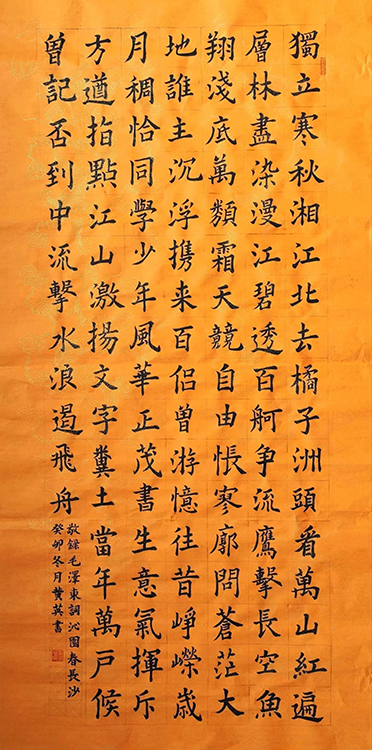 獨立寒秋湘江北去橘子洲頭看萬山紅遍
層林盡染漫江碧透百舸争流鷹擊長空魚
翔淺底萬類霜天競自由悵寥廓問蒼茫大
地誰主沉浮携来百侣曾游憶往昔崢嶸歲
月稠恰同學少年風華正茂書生意氣揮斥
方遒指點江山激揚文字糞土當年萬戶侯
曾記否到中流擊水浪遏飛舟
敬錄毛澤東詞沁園春長沙
癸卯冬月黄英書